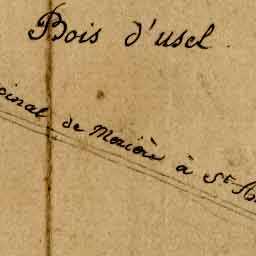 Bois d'usel
cinal de Meziere à St